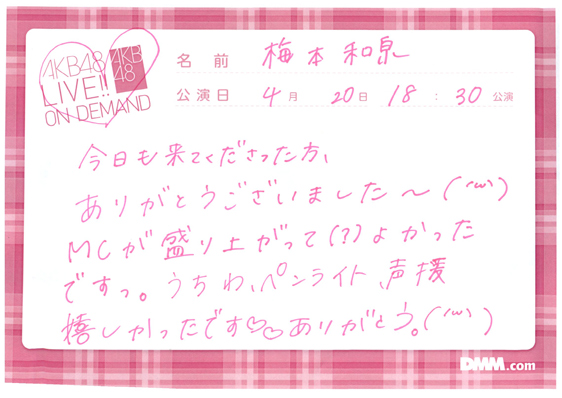 AKB48
LIVE!!
ON DEMAND
AKB
48
名前 梅本和泉
公演日 4月 20日 18:30公演
今日も来てくださった方、
ありがとうございました〜(´ω`)
MCが盛り上がって(?)よかった
ですっ。うちわ、ペンライト、声援
嬉しかったです♡♡ありがとう。(´ω`)
DMM.com